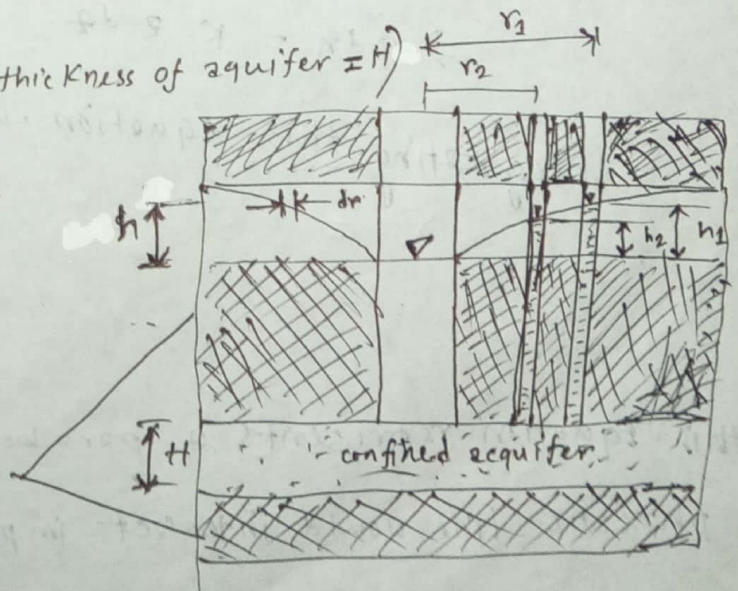 r1
thickness of aquifer = H)
r2
dr
h
h2
h1
H
confined acquifer